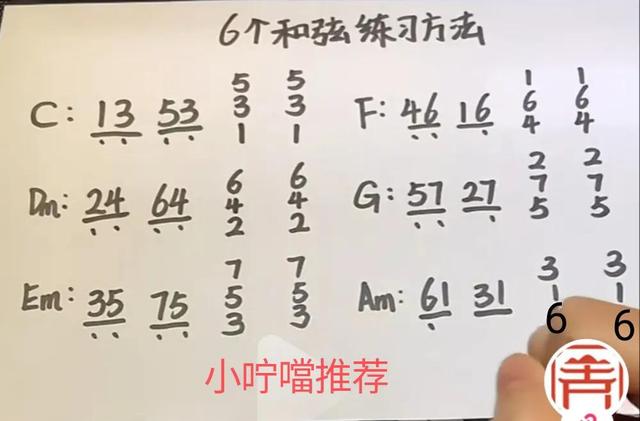 6个和弦练习方法
C: 13 53 531 531
F: 46 16 164 164
Dm: 24 64 642 642
G: 57 27 275 275
Em: 35 75 753 753
Am: 61 31 316 316
小咛噹推荐